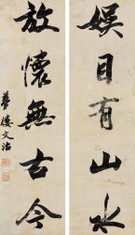 娛目有山水
放懷無古今
夢樓文治